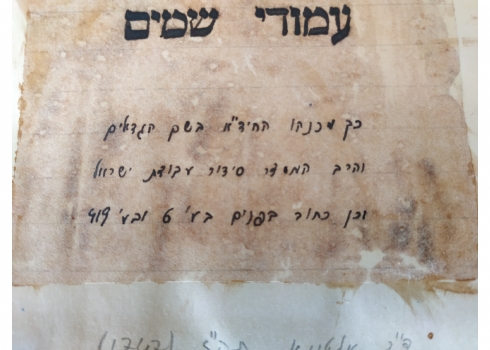 עמודי שמים
כך מכנהו החיד"א בשם הגדולים
והרב המסדר סידור עבודת ישראל
וכן כתוב בפנים בע' 6 ובע'